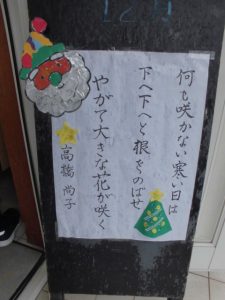 何も咲かない寒い日は
下へ下へと根をのばせ
やがて大きな花が咲く
高橋尚子